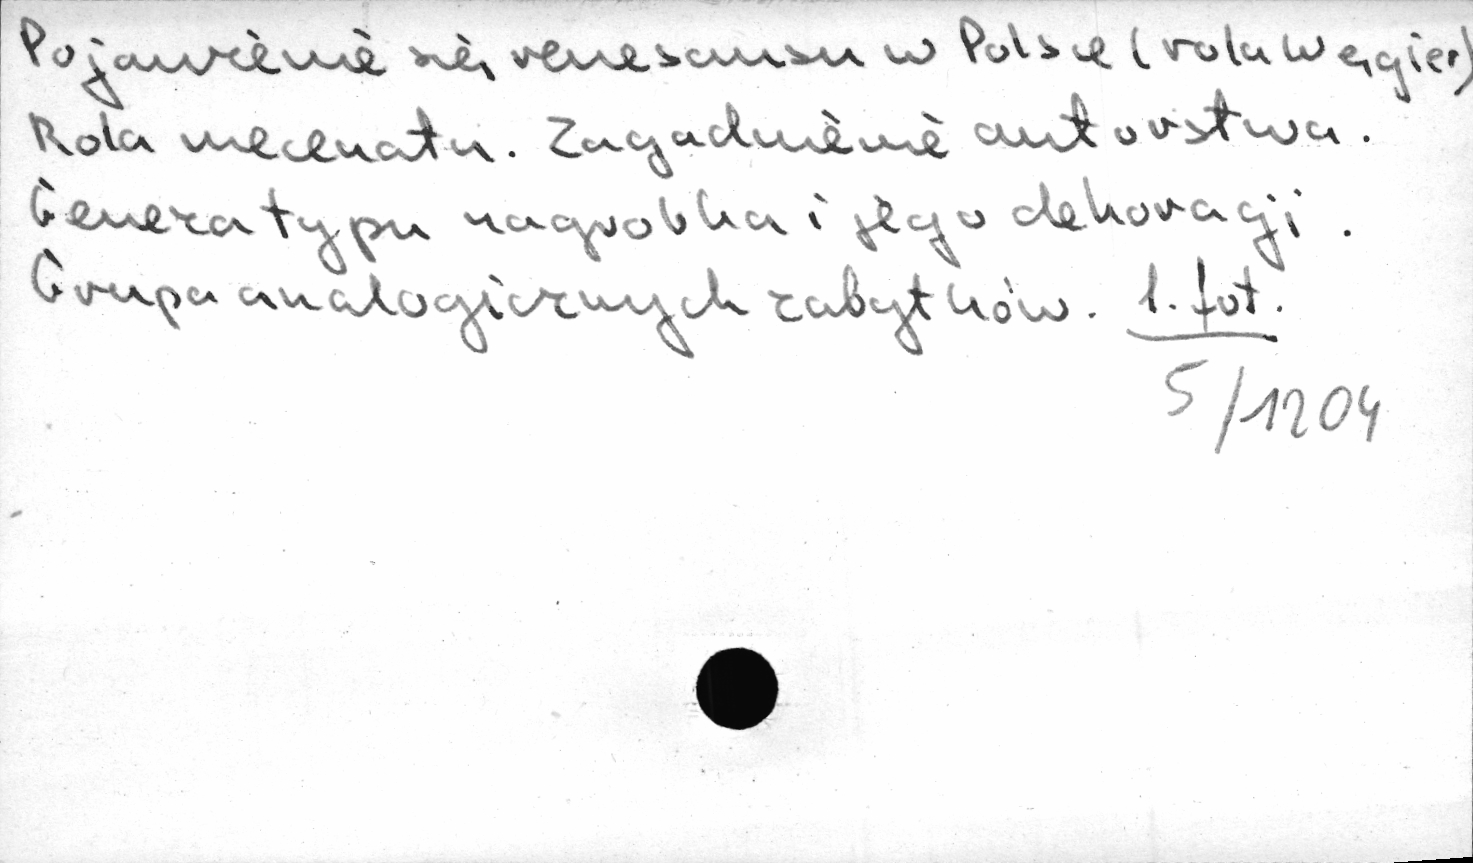 Pojawienie się renesansu w Polsce (rola Węgier)
Rola mecenatu. Zagadnienie autorstwa.
Geneza typu nagrobka i jego dekoracji.
Grupa analogicznych zabytków. 1. fot.
5/1204